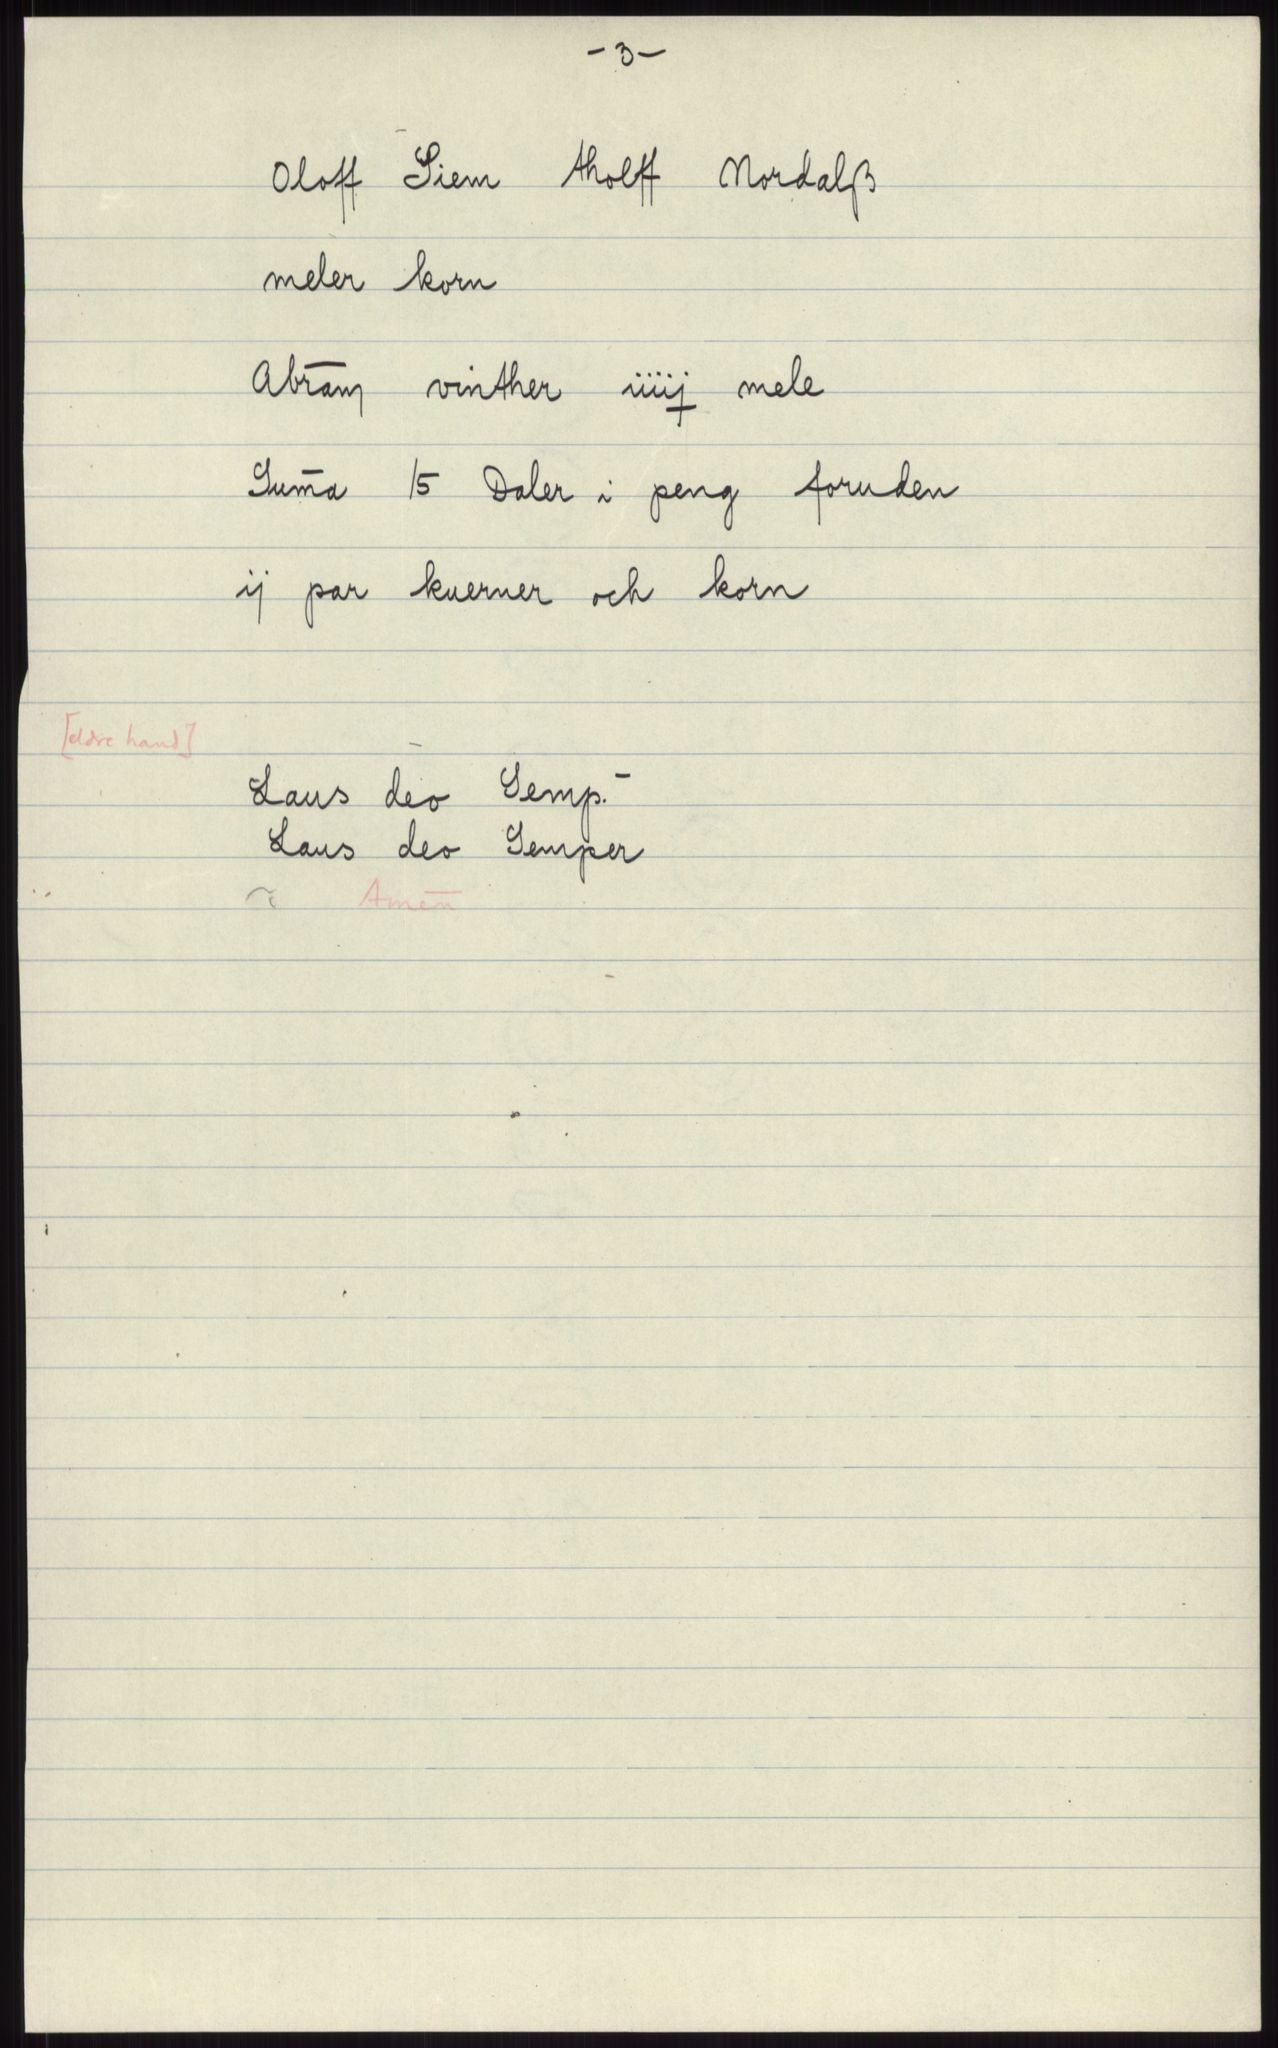 -3-
Oloff Siem tholff Nordalß
meler korn
Abrām vinther iiiij mele
Sum̄a 15 Daler i peng foruden
ij par kuerner och korn
[eldre hand]
Laus deo Semp.-
Laus deo Semper
Amen̄